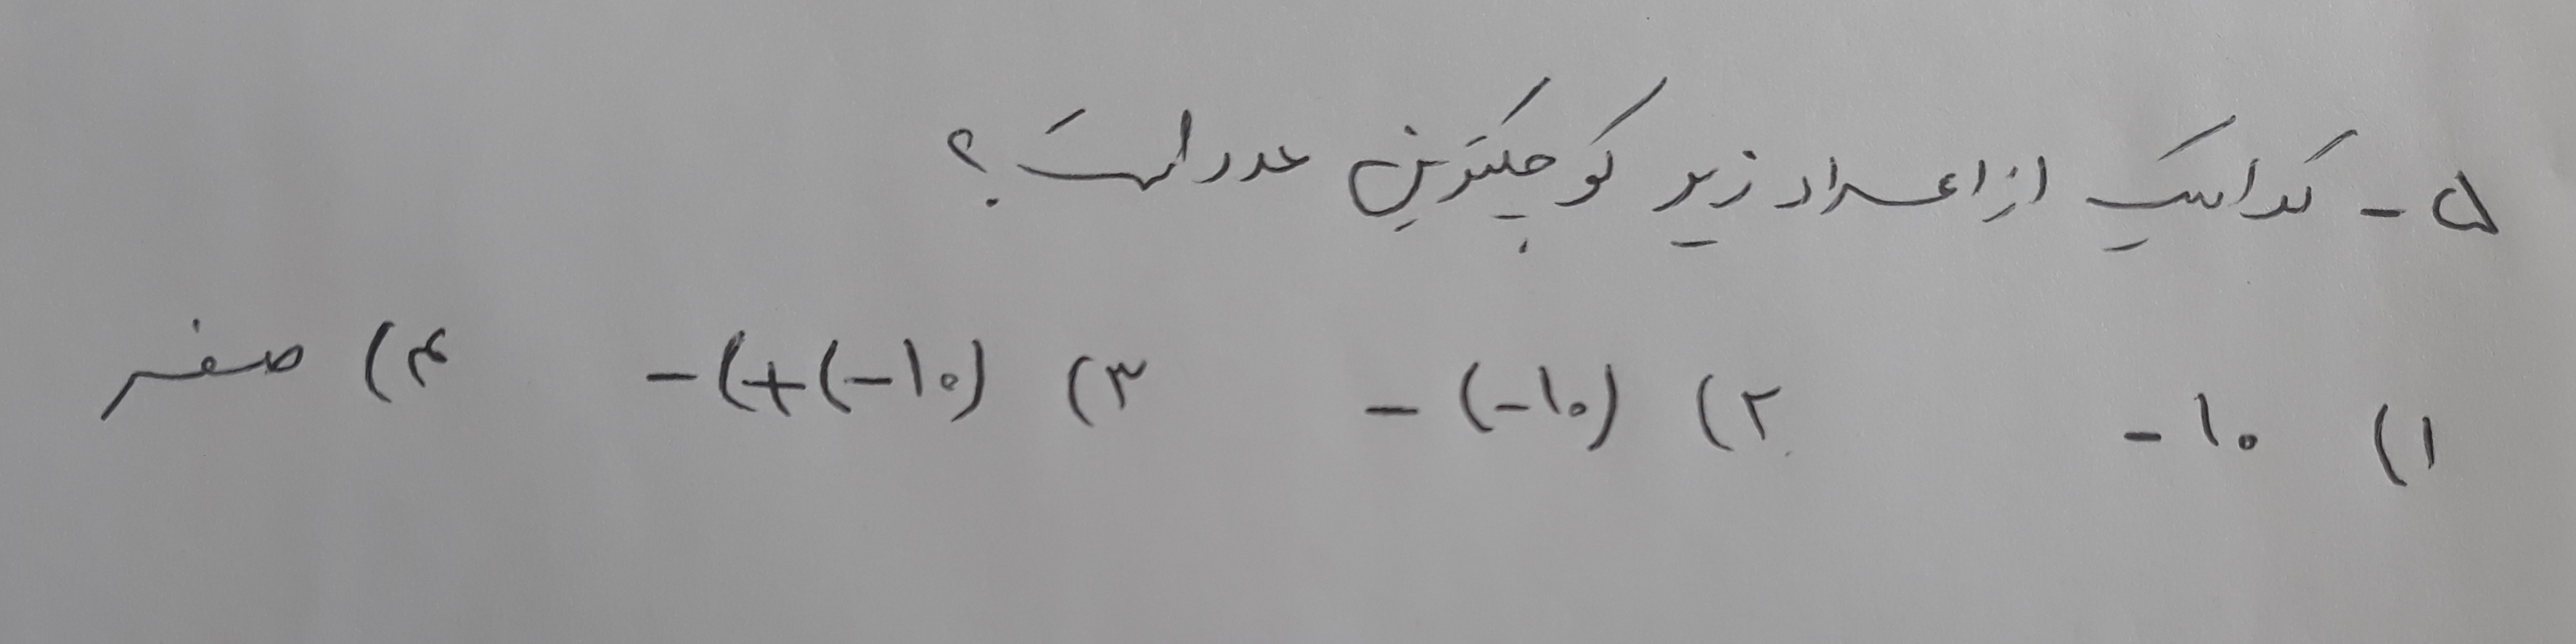 ۵- کدامیک از اعداد زیر کوچکترین عدد است؟
۱) -۱۰ ۲) -(-۱۰) ۳) -(+(-۱۰) ۴) صفر